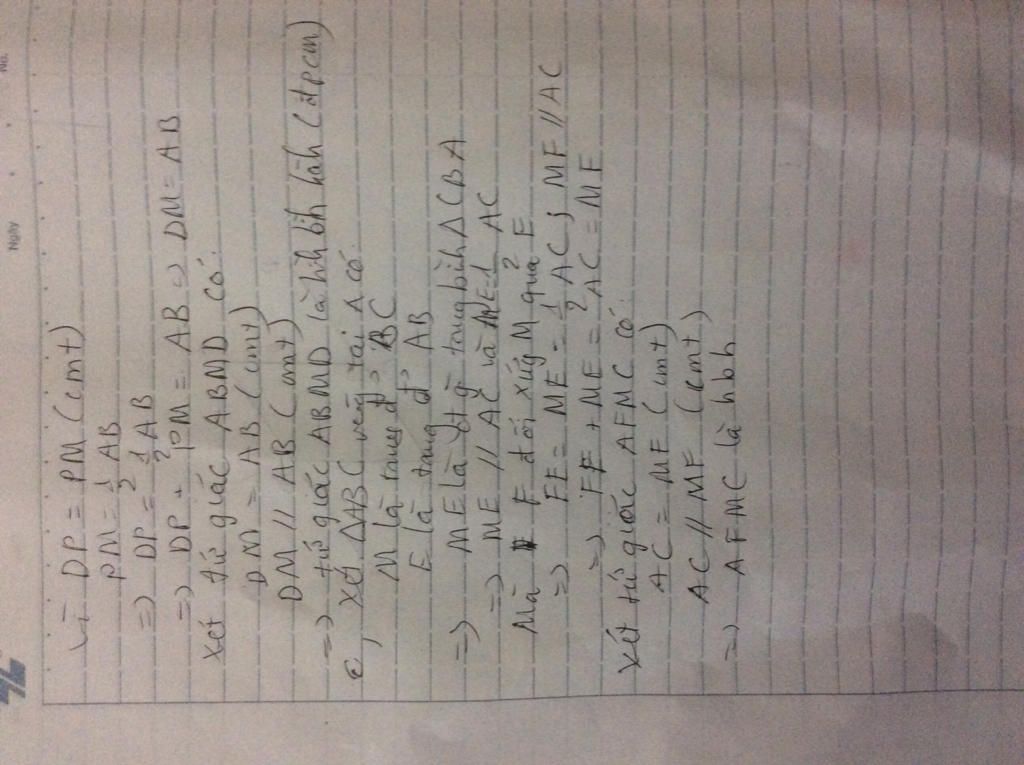 No.
Ngày
Vì DP = PM (cmt)
PM = 1/2 AB
=> DP = 1/2 AB
=> DP + PM = AB => DM = AB
Xét tứ giác ABMD có:
DM = AB (cmt)
DM // AB (cmt)
=> tứ giác ABMD là hình bình hành (đpcm)
c, Xét ΔABC vuông tại A có:
M là trung đ' BC
E là trung đ' AB
=> ME là đtg trung bình ΔCBA
=> ME // AC và ME = 1/2 AC
Mà F đối xứng M qua E
=> FE = ME = 1/2 AC; MF // AC
=> FE + ME = AC = MF
Xét tứ giác AFMC có:
AC = MF (cmt)
AC // MF (cmt)
=> AFMC là hbh